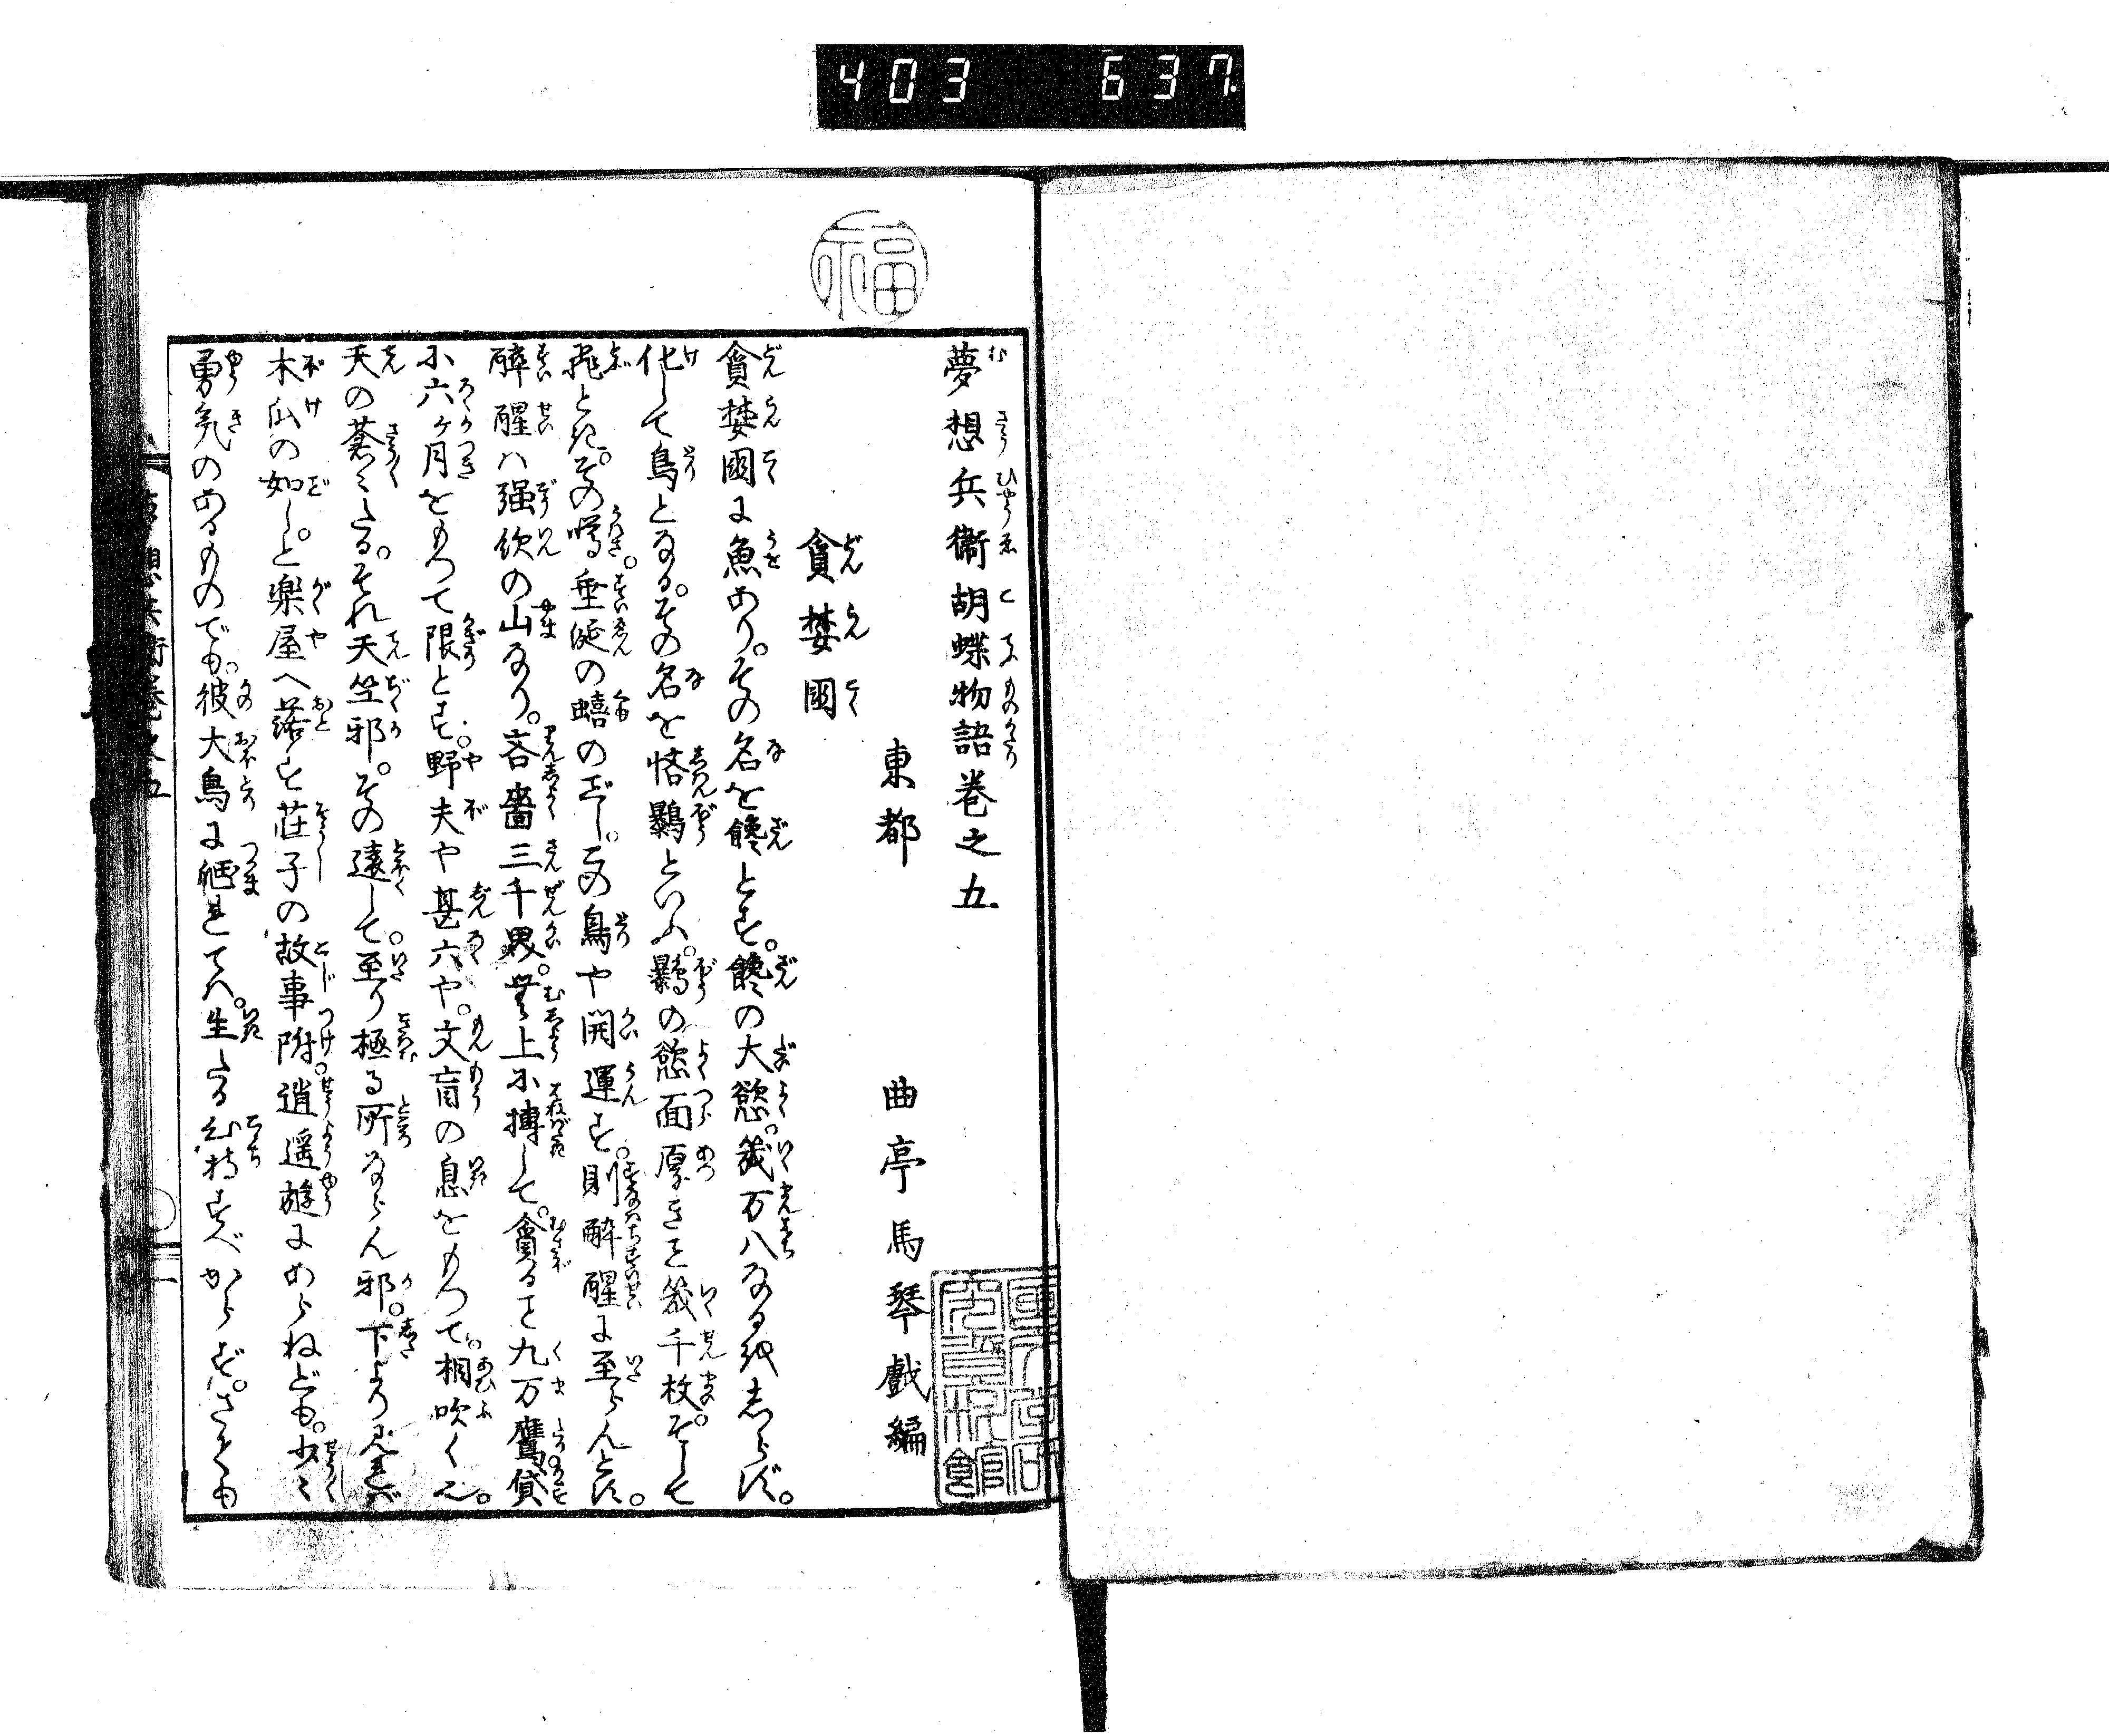 403 637
福
夢想兵衞胡蝶物語巻之五
東都 曲亭馬琴戯編
貪婪國
貪婪國に魚あり。その名を饞とす。饞の大慾。幾万八なる越しらず。
化して鳥となる。その名を悋鸔といふ。鸔の慾面厚きこと幾千枚。そして
飛とき。その噂。垂涎の蟢のごとし。この鳥や開運す。則酔醒に至らんとす。
酔醒ハ强飲の山なり。吝嗇三千界。無上に摶して。貪ること九万鷹貸
小六ケ月をもつて限とす。野夫や甚六や。文盲の息をもつて。相吹く也。
天の蒼〻たる。それ天竺邪。その遠して。至り極る所ならん邪。下より見れば
木瓜の如し。と樂屋へ落す荘子の故事附。逍遥遊にあらねども。少〻
勇気のあるものでも。彼大鳥に

生たる心持すべからず。さても
夢想兵衛巻之五